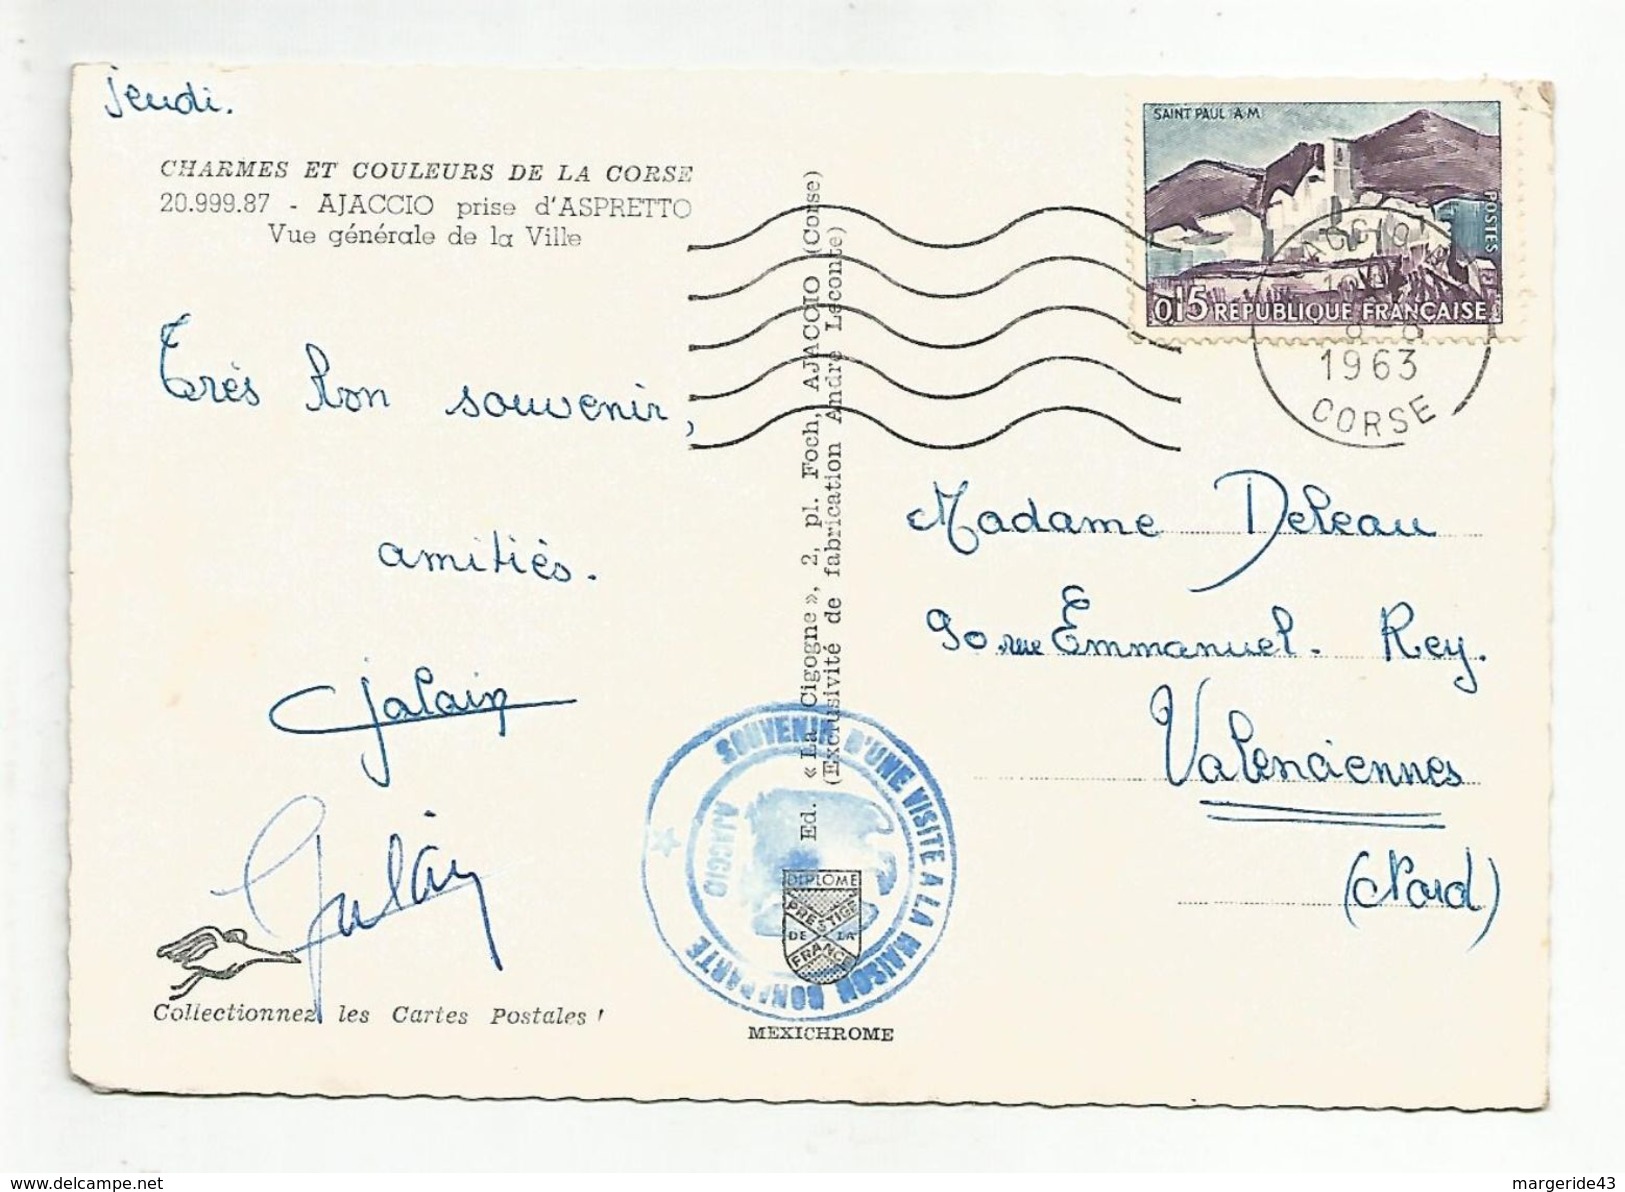 Jeudi.
CHARMES ET COULEURS DE LA CORSE
20.999.87 - AJACCIO prise d'ASPRETTO
Vue générale de la Ville
Très bon souvenir,
amitiés.
Jalain
Collectionnez les Cartes Postales !
Ed. « La Cigogne », 2, pl. Foch, AJACCIO (Corse)
(Exclusivité de fabrication André Leconte)
SOUVENIR D'UNE VISITE A LA MAISON BONAPARTE
AJACCIO
DIPLOME
PRESTIGE
DE LA
FRANCE
MEXICHROME
SAINT PAUL A-M
POSTES
0,15 RÉPUBLIQUE FRANÇAISE
1963
CORSE
Madame Deleau
90 rue Emmanuel-Rey.
Valenciennes
(Nord)
delcampe.net
margeride43